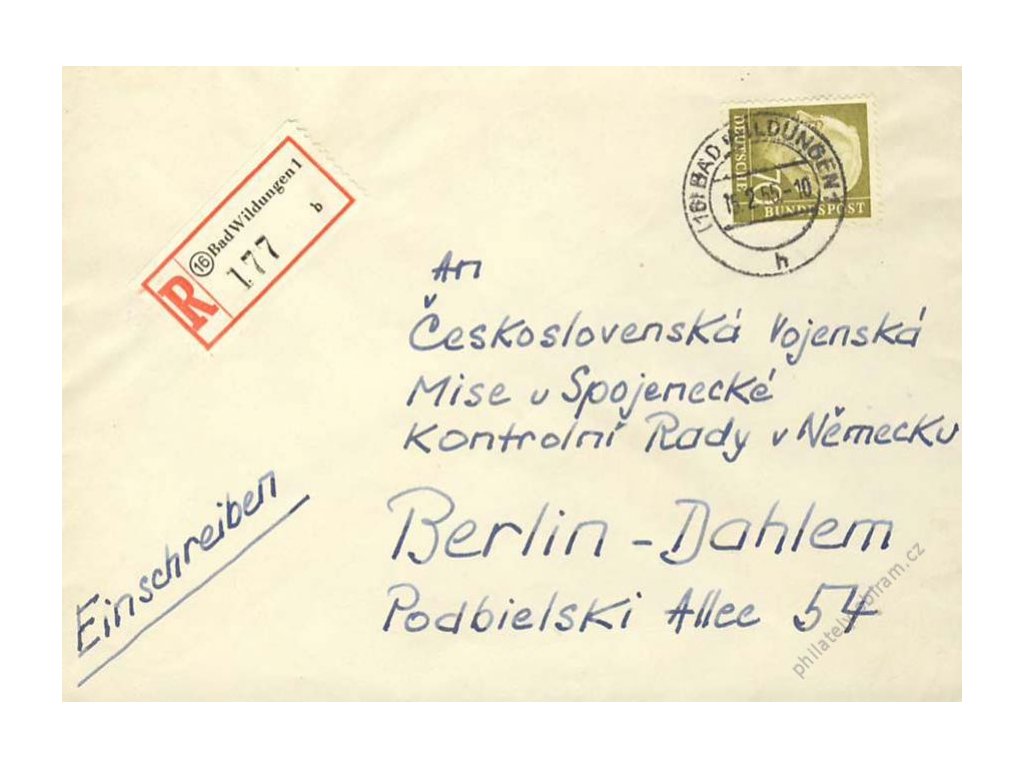 R
(16) Bad Wildungen 1
b
177
DEUTSCHE
BUNDESPOST
(16) BAD WILDUNGEN 1
2.55-10
h
An
Československá Vojenská
Mise u Spojenecké
Kontrolní Rady v Německu
Berlin - Dahlem
Podbielski Allee 54
Einschreiben
philately-pbiram.cz